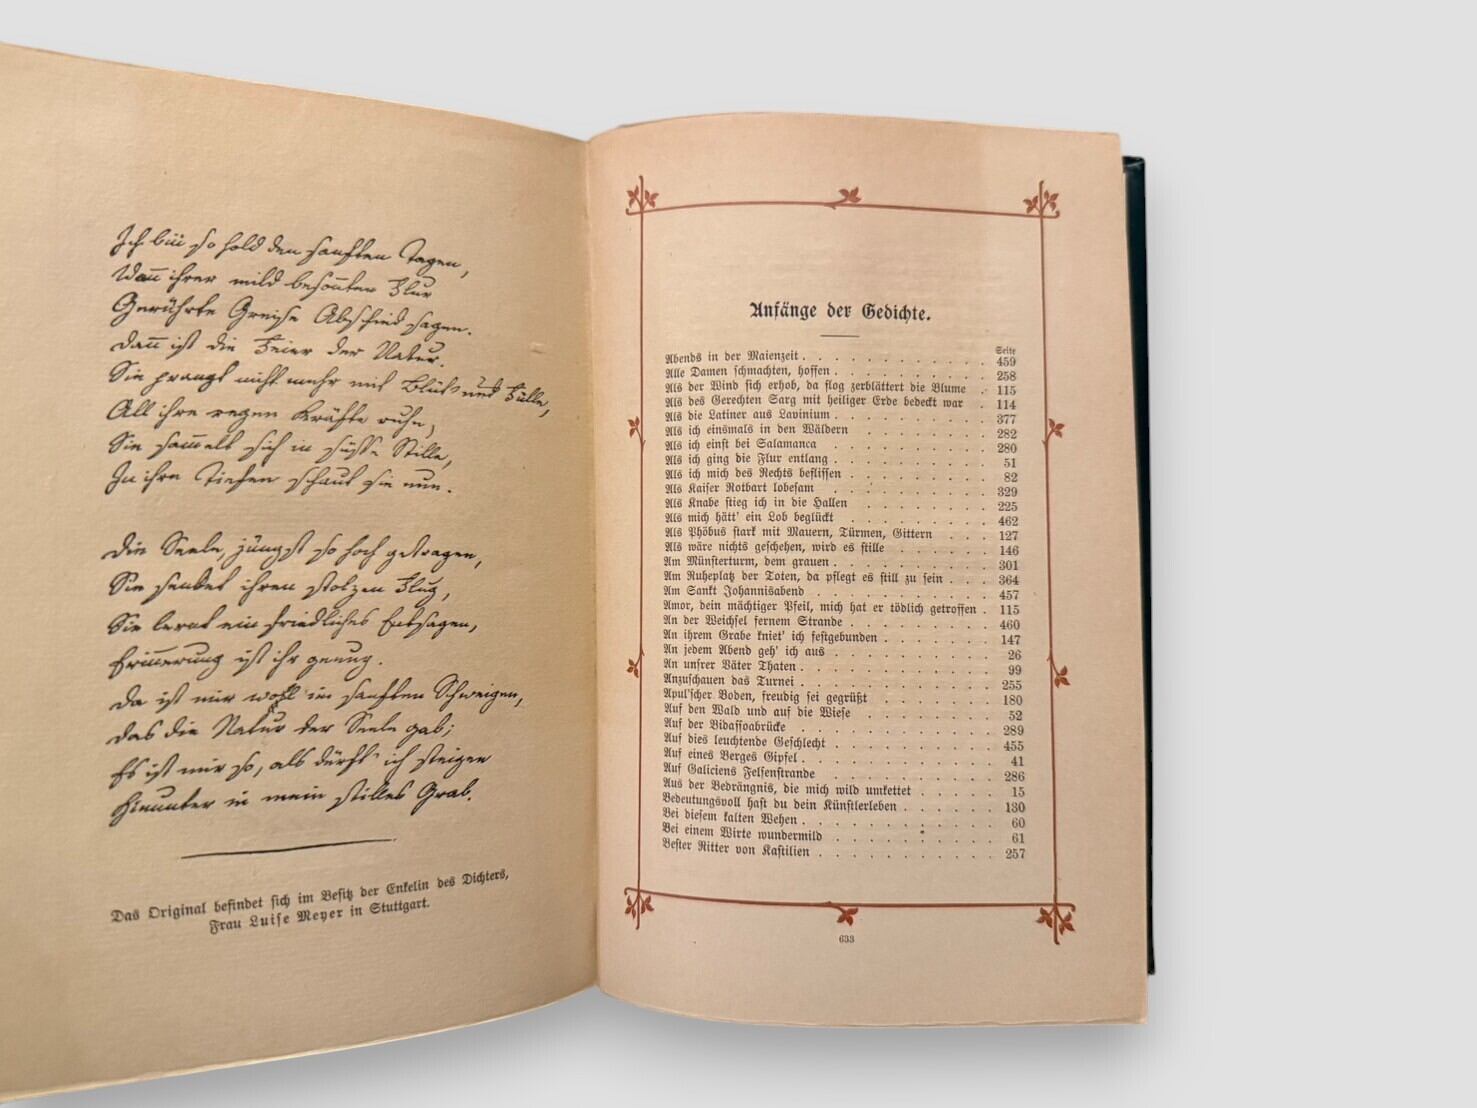 Ich bin so hold den sanften Tagen,
Wann ihrer mild besonnten Flur
Gerührte Greise Abschied sagen.
Dann ist die Feier der Natur.
Sie prangt nicht mehr mit Blüt' und Fülle,
All ihre regen Kräfte ruhn,
Sie sammelt sich in süße Stille,
In ihre Tiefen schaut sie nun.
Die Seele, jüngst so hoch getragen,
Sie senket ihren stolzen Flug,
Sie lernt ein friedliches Entsagen,
Erinnerung ist ihr genug.
Da ist mir wohl im sanften Schweigen,
Das die Natur der Seele gab;
Es ist mir so, als dürft' ich steigen
Hinunter in mein stilles Grab.
Das Original befindet sich im Besitz der Enkelin des Dichters,
Frau Luise Meyer in Stuttgart.
Anfänge der Gedichte.
Seite
Abends in der Maienzeit . . . . . . . . . . . . 459
Alle Damen schmachten, hoffen . . . . . . . . . 258
Als der Wind sich erhob, da flog zerblättert die Blume . 115
Als des Gerechten Sarg mit heiliger Erde bedeckt war . 114
Als die Latiner aus Lavinium . . . . . . . . . . 377
Als ich einsmals in den Wäldern . . . . . . . . 282
Als ich einst bei Salamanca . . . . . . . . . . 280
Als ich ging die Flur entlang . . . . . . . . . . 51
Als ich mich des Rechts beflissen . . . . . . . . . 82
Als Kaiser Rotbart lobesam . . . . . . . . . . 329
Als Knabe stieg ich in die Hallen . . . . . . . . 225
Als mich hätt' ein Lob beglückt . . . . . . . . . 462
Als Phöbus stark mit Mauern, Türmen, Gittern . . . 127
Als wäre nichts geschehen, wird es stille . . . . . . 146
Am Münsterturm, dem grauen . . . . . . . . . . 301
Am Ruheplatz der Toten, da pflegt es still zu sein . . . 364
Am Sankt Johannisabend . . . . . . . . . . . 457
Amor, dein mächtiger Pfeil, mich hat er tödlich getroffen . 115
An der Weichsel fernem Strande . . . . . . . . . 460
An ihrem Grabe kniet' ich festgebunden . . . . . . . 147
An jedem Abend geh' ich aus . . . . . . . . . . 26
An unsrer Väter Thaten . . . . . . . . . . . . 99
Anzuschauen das Turnei . . . . . . . . . . . . 255
Apul'scher Boden, freudig sei gegrüßt . . . . . . . 180
Auf den Wald und auf die Wiese . . . . . . . . 52
Auf der Bidassoabrücke . . . . . . . . . . . . 289
Auf dies leuchtende Geschlecht . . . . . . . . . . 455
Auf eines Berges Gipfel . . . . . . . . . . . . 41
Auf Galiciens Felsenstrande . . . . . . . . . . 286
Aus der Bedrängnis, die mich wild umkettet . . . . . 15
Bedeutungsvoll hast du dein Künstlerleben . . . . . . 130
Bei diesem kalten Wehen . . . . . . . . . . . . 60
Bei einem Wirte wundermild . . . . . . . . . . 61
Bester Ritter von Kastilien . . . . . . . . . . . 257
633